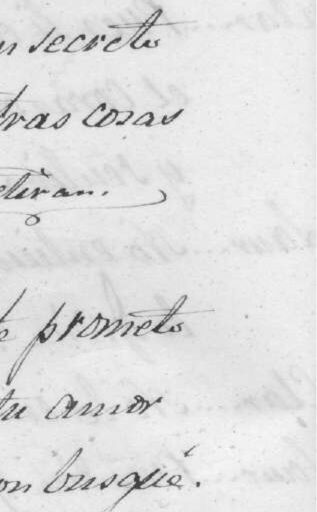 n secreto
tras cosas
etiran.
te prometo
tu amor
on busqué.